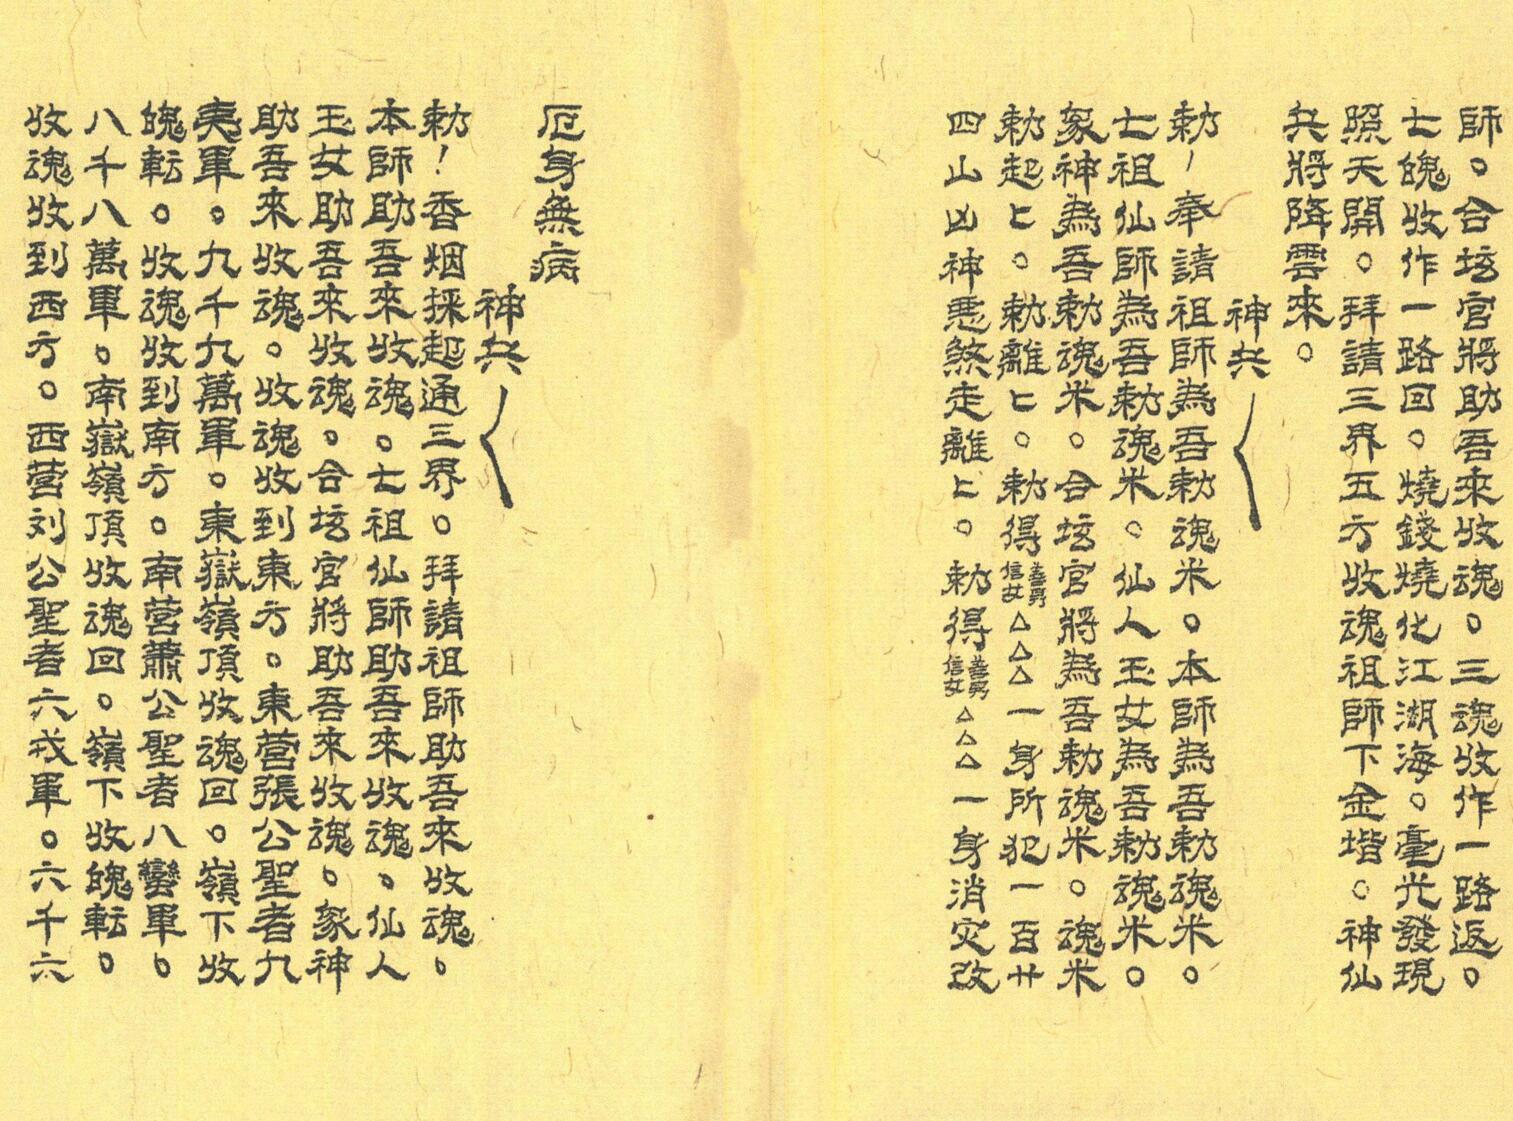 師。合坛官將助吾來收魂。三魂收作一路返。
七魄收作一路回。燒錢燒化江湖海。毫光發現
照天開。拜請三界五方收魂祖師下金堦。神仙
兵將降雲來。
神兵
勅!奉請祖師為吾勅魂米。本師為吾勅魂米。
七祖仙師為吾勅魂米。仙人玉女為吾勅魂米。
眾神為吾勅魂米。合坛官將為吾勅魂米。魂米
勅起〻。勅離〻。勅得善男信女△△△一身所犯一百廿
四山凶神惡煞走離〻。勅得善男信女△△△一身消灾改
厄身無病
神兵
勅!香烟採起通三界。拜請祖師助吾來收魂。
本師助吾來收魂。七祖仙師助吾來收魂。仙人
玉女助吾來收魂。合坛官將助吾來收魂。眾神
助吾來收魂。收魂收到東方。東营張公聖者九
夷軍。九千九萬軍。東嶽嶺頂收魂回。嶺下收
魄転。收魂收到南方。南营蕭公聖者八蠻軍。
八千八萬軍。南嶽嶺頂收魂回。嶺下收魄転。
收魂收到西方。西营刘公聖者六戎軍。六千六